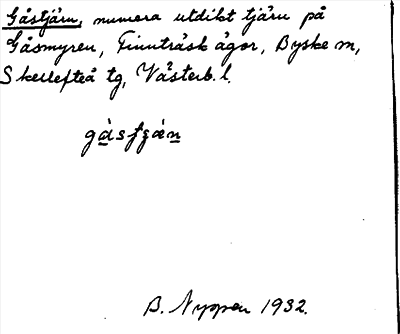 Gåstjärn, numera utdikt tjärn på
Gåsmyren, Finnträsk ägor, Byske sn,
Skellefteå tg, Västerb. l.
B. Nyppen 1932.